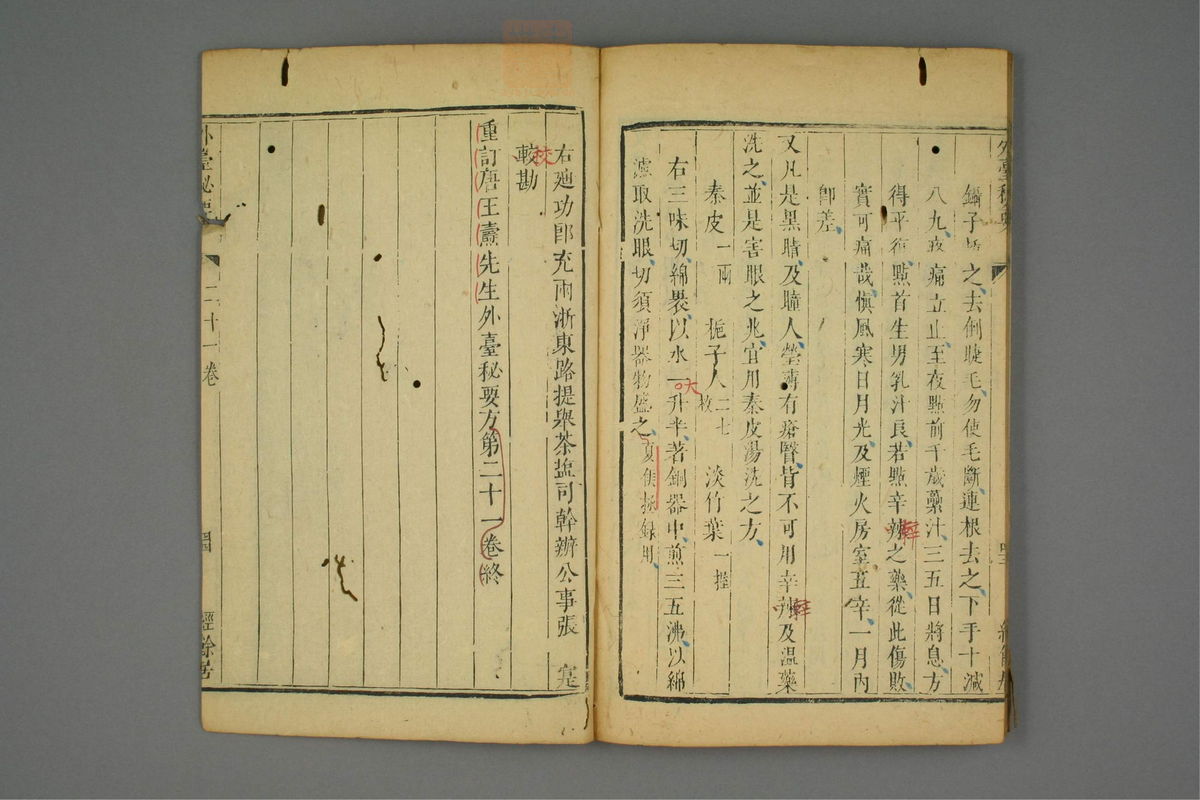 鑷子 之去倒睫毛勿使毛斷連根去之下手十減
八九疼痛立止至夜點前千歲蘽汁三五日將息方
得平復點首生男乳汁良若點辛辣之藥從此傷敗
實可痛哉慎風寒日月光及煙火房室五辛一月內
卽差
又凡是黑睛及瞳人瑩薄有瘡瞖皆不可用辛辣及溫藥
洗之並是害眼之兆宜用秦皮湯洗之方
秦皮一兩 梔子人二七枚 淡竹葉一握
右三味切綿裹以水一大升半著銅器中煎三五沸以綿
濾取洗眼切須淨器物盛之 錄用
右廸功郎充兩浙東路提舉茶塩司幹辦公事張 寔
較勘
校
重訂唐王燾先生外臺秘要方第二十一卷終
外臺秘要
二十一卷
經餘居